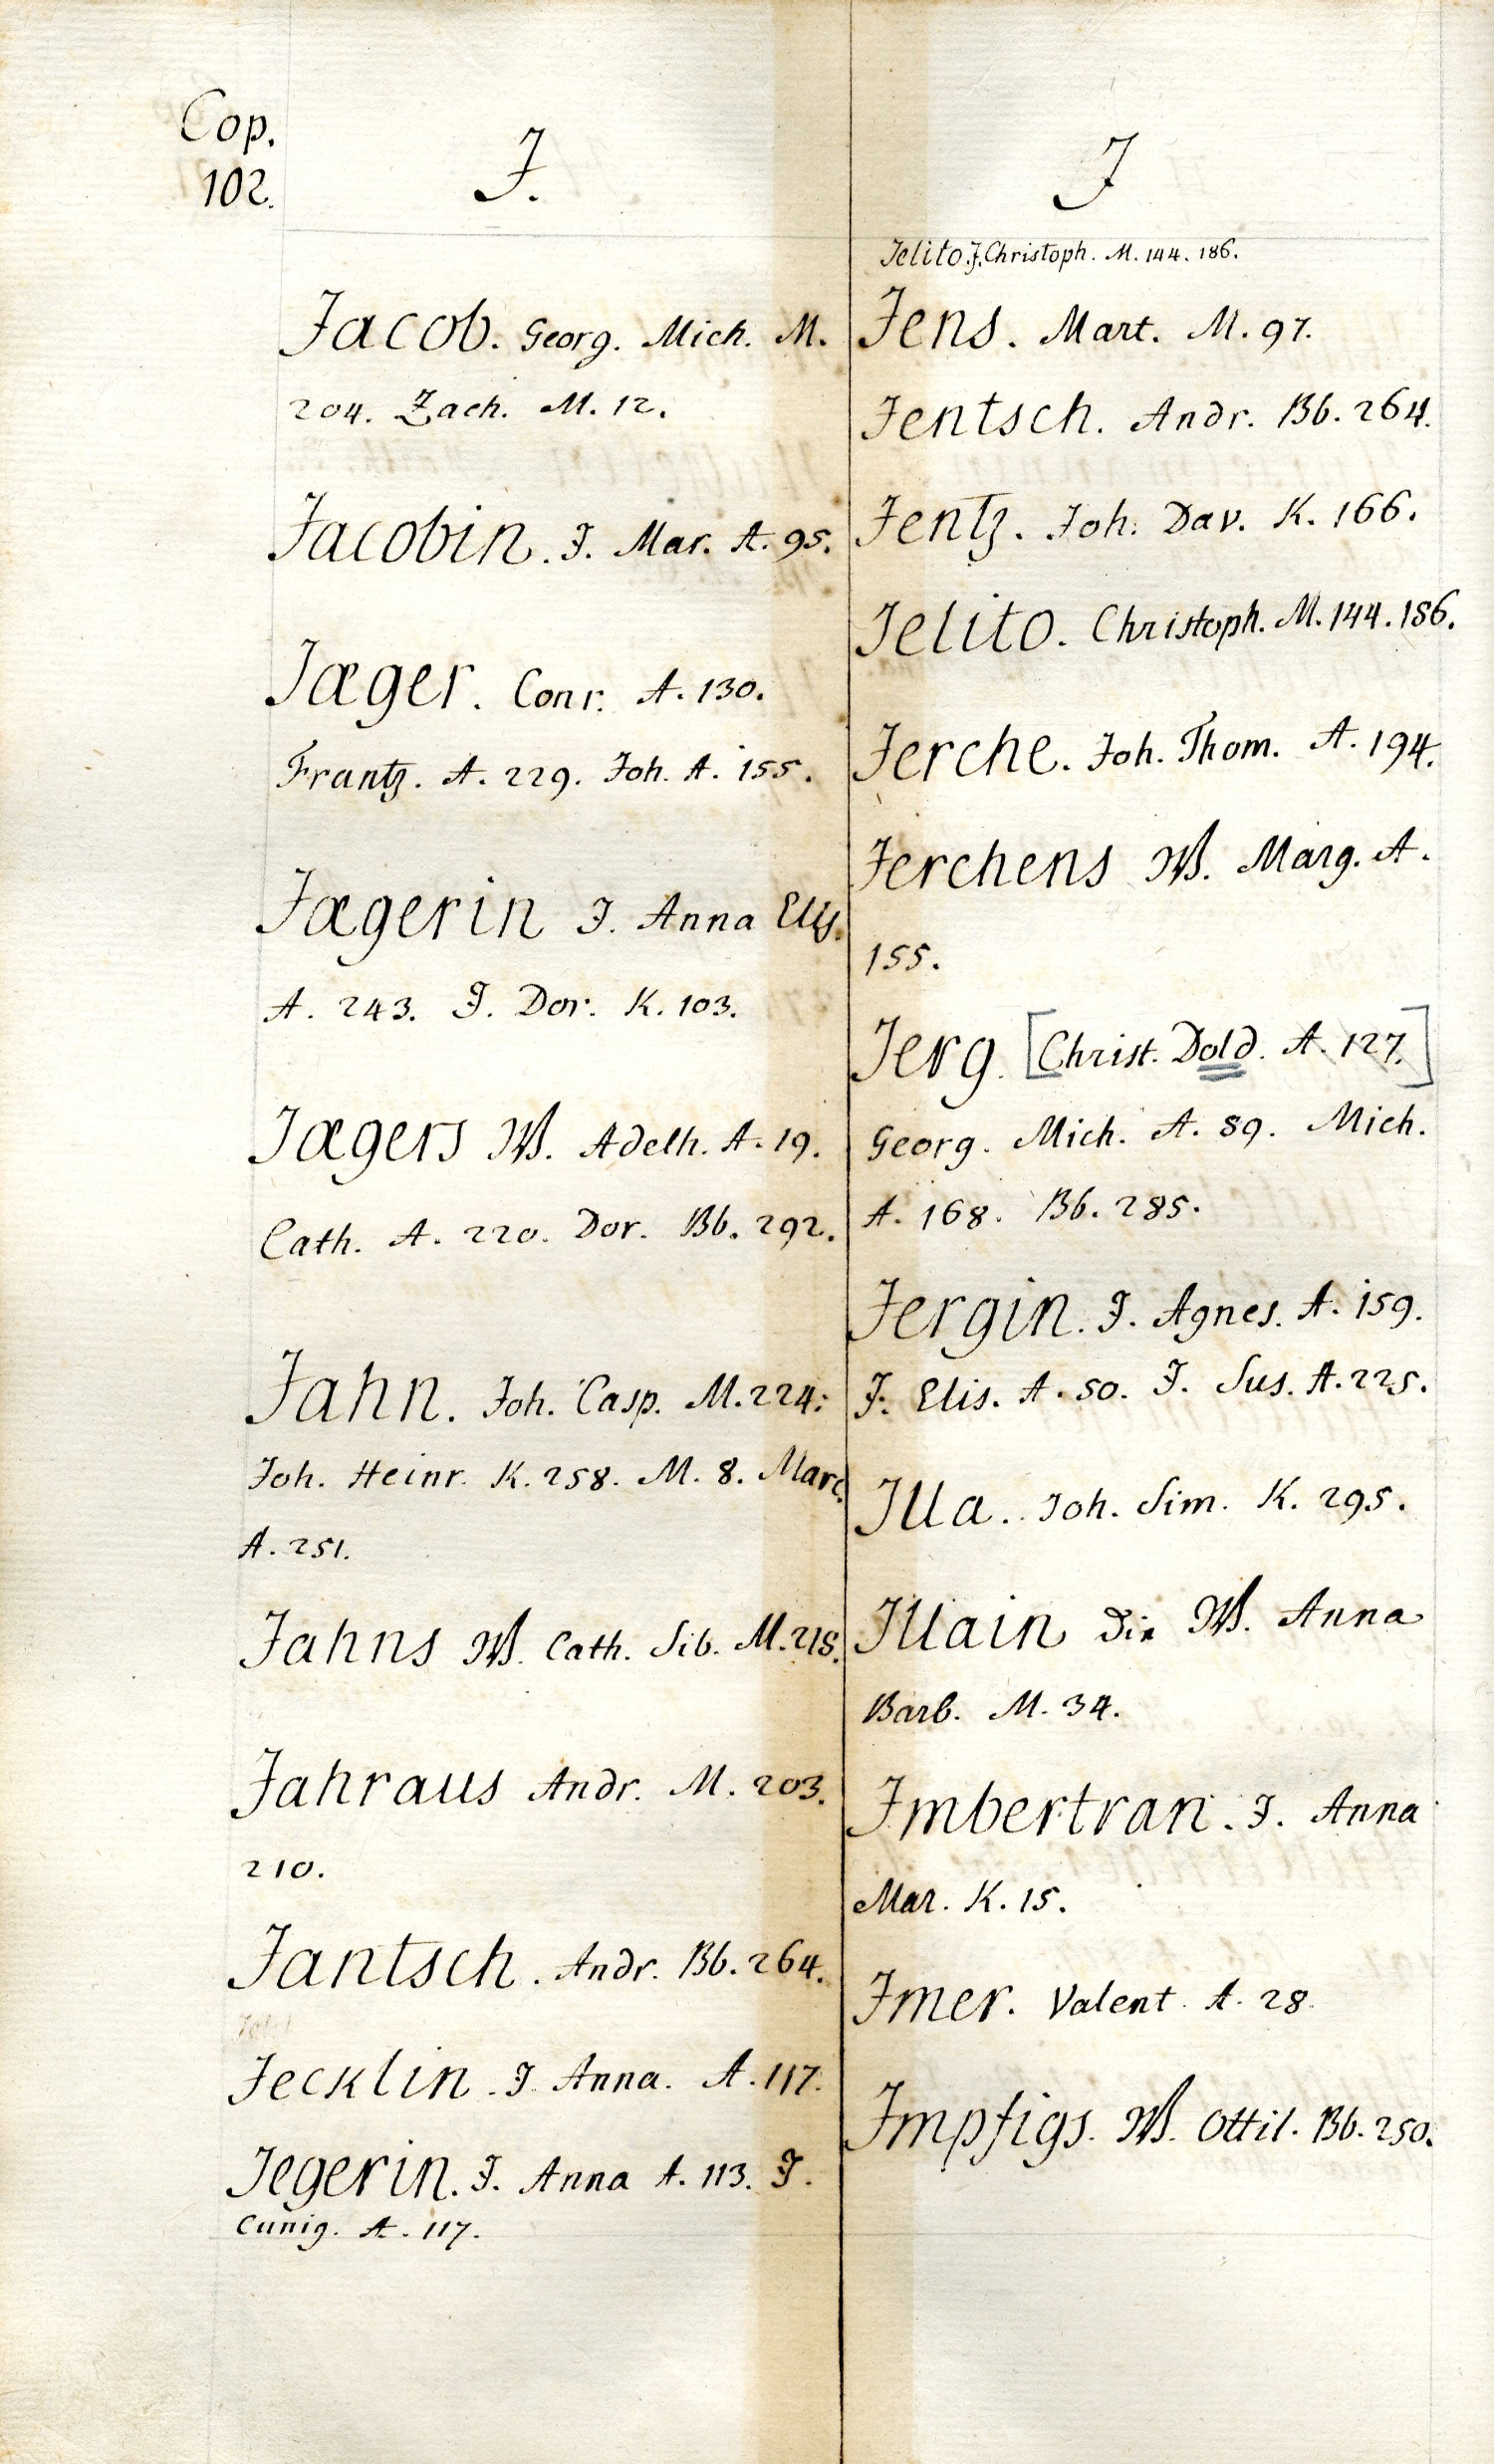 Cop.
102.
J.
Jacob. Georg. Mich. M.
204. Zach. M. 12.
Jacobin. J. Mar. A. 95.
Jæger. Conr. A. 130.
Frantz. A. 229. Joh. A. 155.
Jægerin J. Anna Elis.
A. 243. J. Dor. K. 103.
Jægers W. Adelh. A. 19.
Cath. A. 220. Dor. Bb. 292.
Jahn. Joh. Casp. M. 224.
Joh. Heinr. K. 258. M. 8. Marc.
A. 251.
Jahns W. Cath. Sib. M. 218.
Jahraus Andr. M. 203.
210.
Jantsch. Andr. Bb. 264.
Jecklin. J. Anna. A. 117.
Jegerin. J. Anna A. 113. J.
Cunig. A. 117.
J
Jelito. J. Christoph. M. 144. 186.
Jens. Mart. M. 97.
Jentsch. Andr. Bb. 264.
Jentz. Joh. Dav. K. 166.
Jelito. Christoph. M. 144. 186.
Jerche. Joh. Thom. A. 194.
Jerchens W. Marg. A.
155.
Jerg. [Christ. Dold. A. 127.]
Georg. Mich. A. 89. Mich.
A. 168. Bb. 285.
Jergin. J. Agnes. A. 159.
J. Elis. A. 50. J. Sus. A. 225.
Jlla. Joh. Sim. K. 295.
Jllain die W. Anna
Barb. M. 34.
Jmbertran. J. Anna
Mar. K. 15.
Jmer. Valent. A. 28.
Jmpfigs. W. Ottil. Bb. 250.